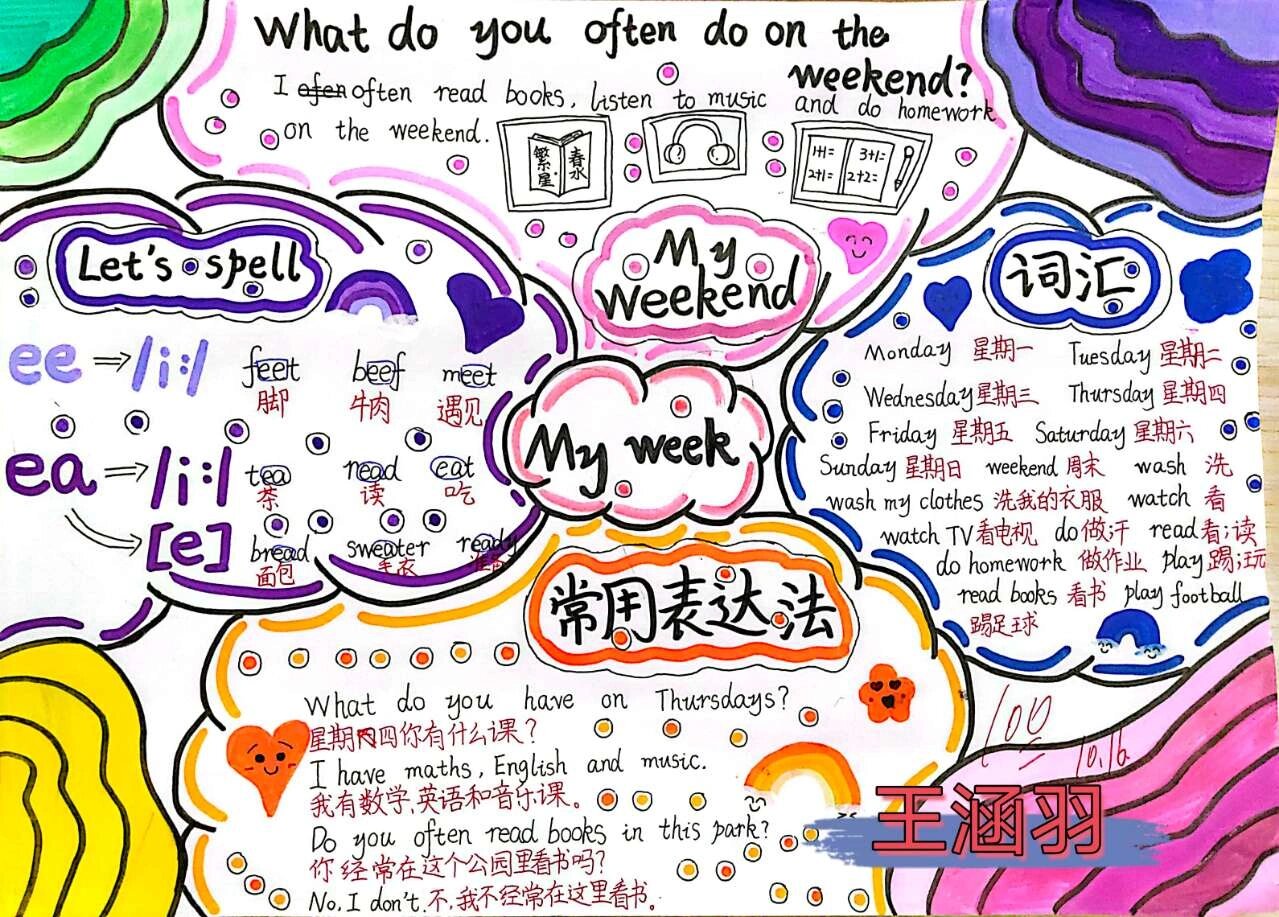 What do you often do on the
weekend?
I ofen often read books, listen to music and do homework
on the weekend.
繁星 春水
1+1= 3+1=
2+1= 2+2=
My
Weekend
Let's spell
ee ⇒ /i:/ feet beef meet
脚 牛肉 遇见
ea ⇒ /i:/ tea read eat
茶 读 吃
⇒ [e] bread sweater ready
面包 毛衣 准备
My week
词汇
Monday 星期一 Tuesday 星期二
Wednesday 星期三 Thursday 星期四
Friday 星期五 Saturday 星期六
Sunday 星期日 weekend 周末 wash 洗
wash my clothes 洗我的衣服 watch 看
watch TV 看电视 do 做;干 read 看;读
do homework 做作业 play 踢;玩
read books 看书 play football
踢足球
常用表达法
What do you have on Thursdays?
星期四你有什么课?
I have maths, English and music.
我有数学,英语和音乐课。
Do you often read books in this park?
你经常在这个公园里看书吗?
No, I don't. 不,我不经常在这里看书。
100
10.16
王涵羽